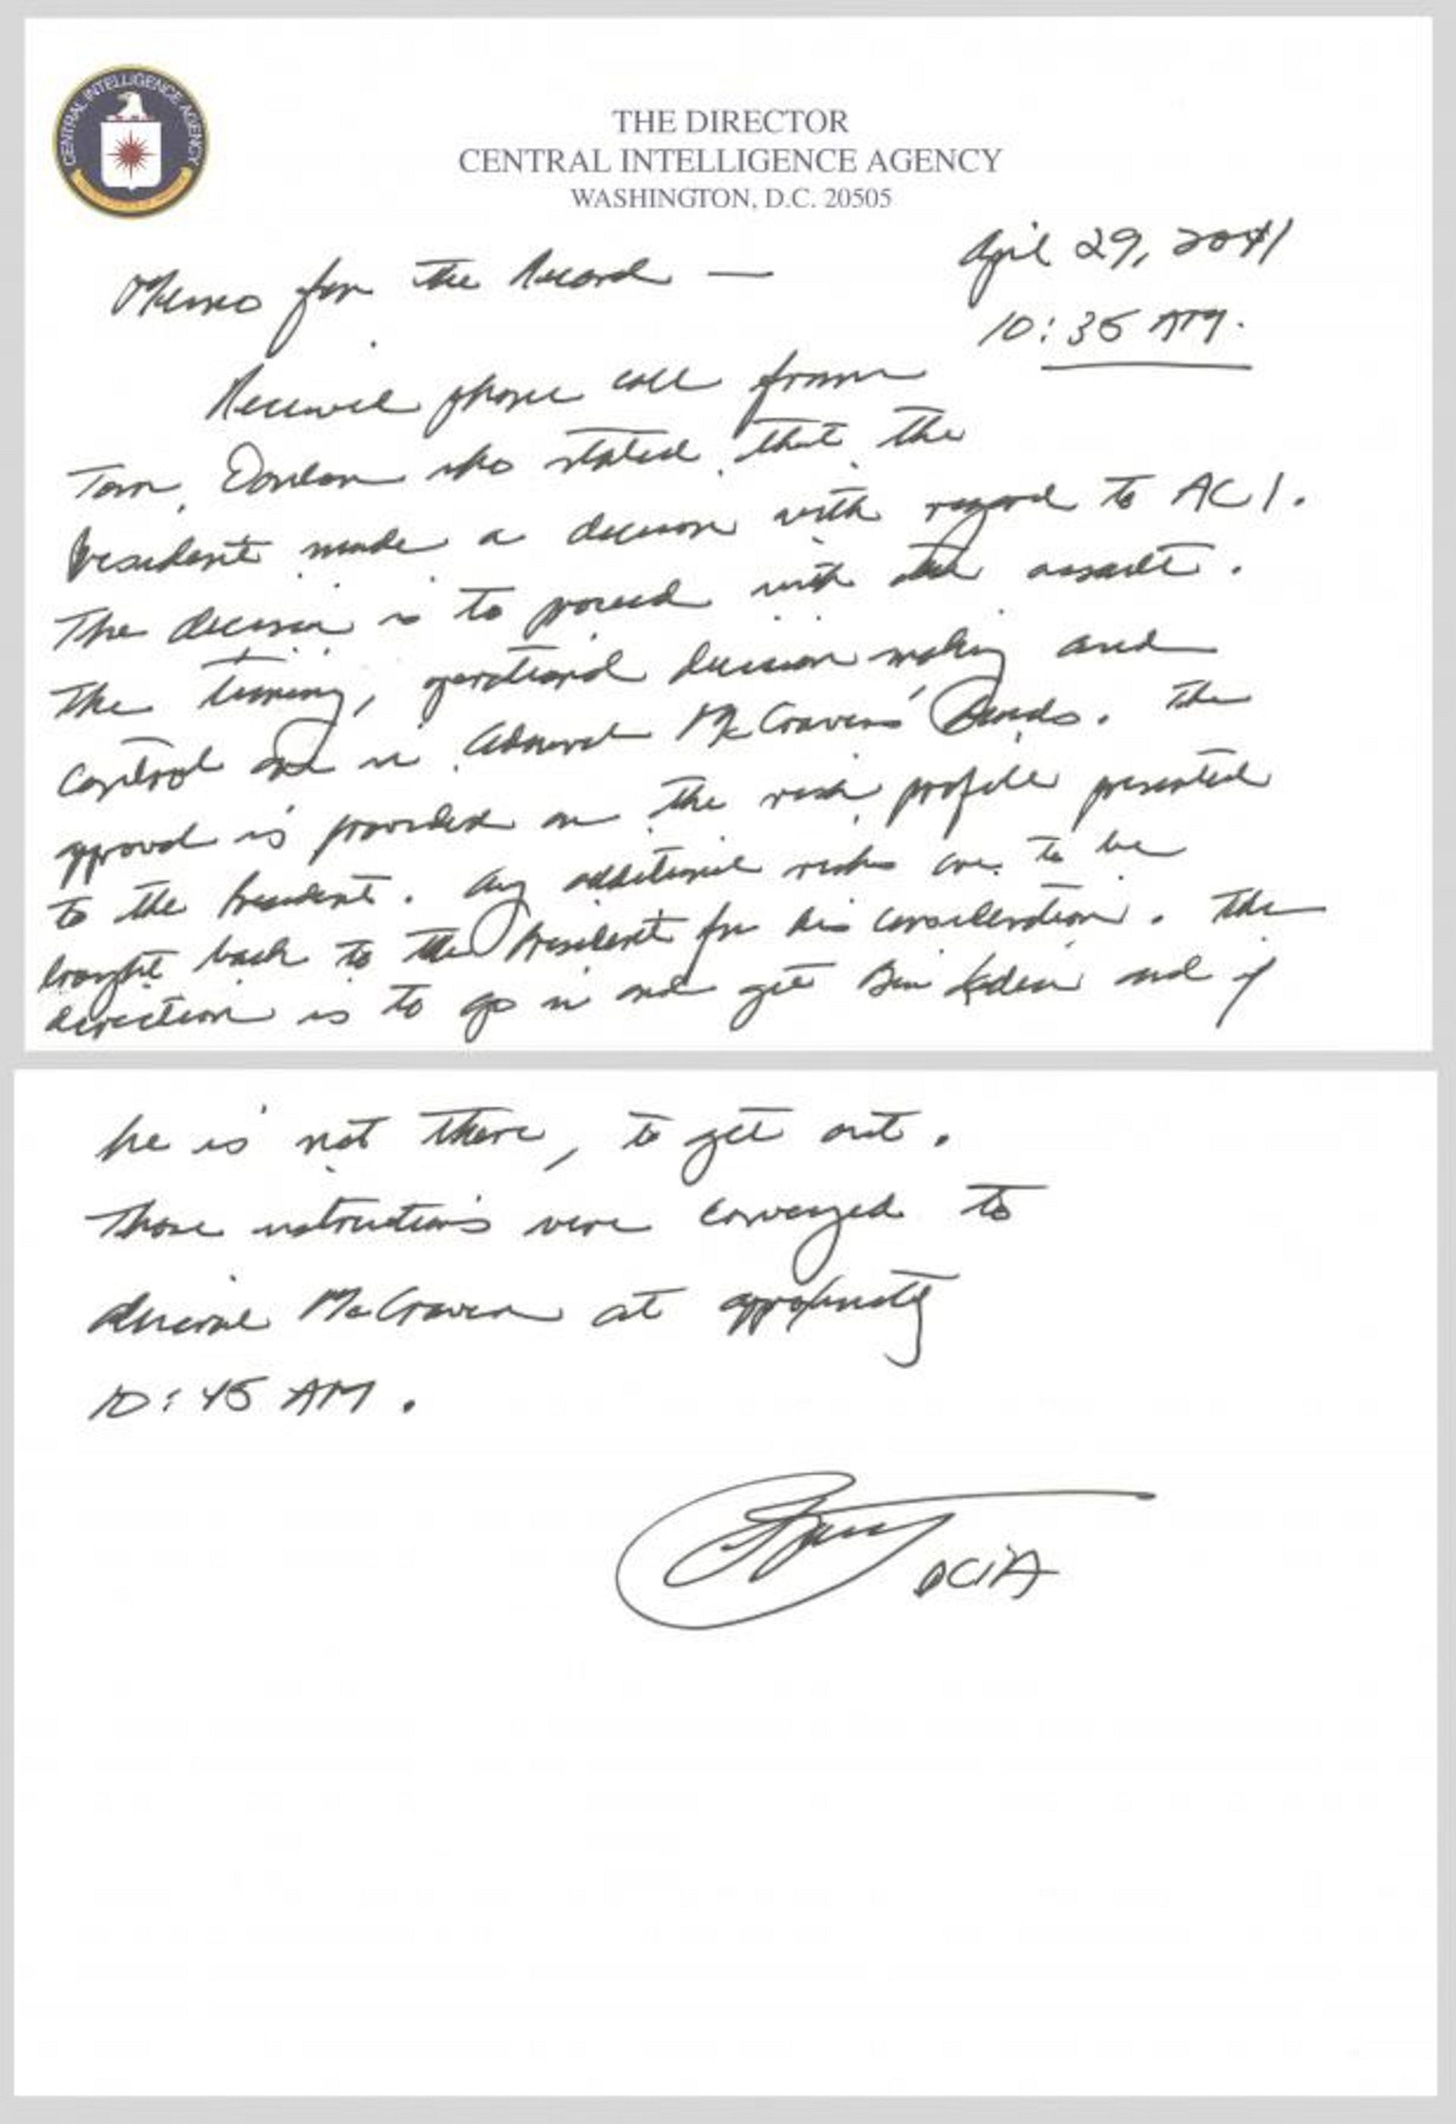 CENTRAL INTELLIGENCE AGENCY
THE DIRECTOR
CENTRAL INTELLIGENCE AGENCY
WASHINGTON, D.C. 20505
April 29, 2011
Memo for the Record —
10:35 AM.
Received phone call from
Tom Donilon who stated that the
President made a decision with regard to AC1.
The decision is to proceed with the assault.
The timing, operational decision making and
control are in Admiral McCravens' hands. The
approval is provided on the risk profile presented
to the President. Any additional risks are to be
brought back to the President for his consideration. The
direction is to go in and get Bin Laden and if
he is not there, to get out.
Those instructions were conveyed to
Admiral McCraven at approximately
10:45 AM.
DCIA